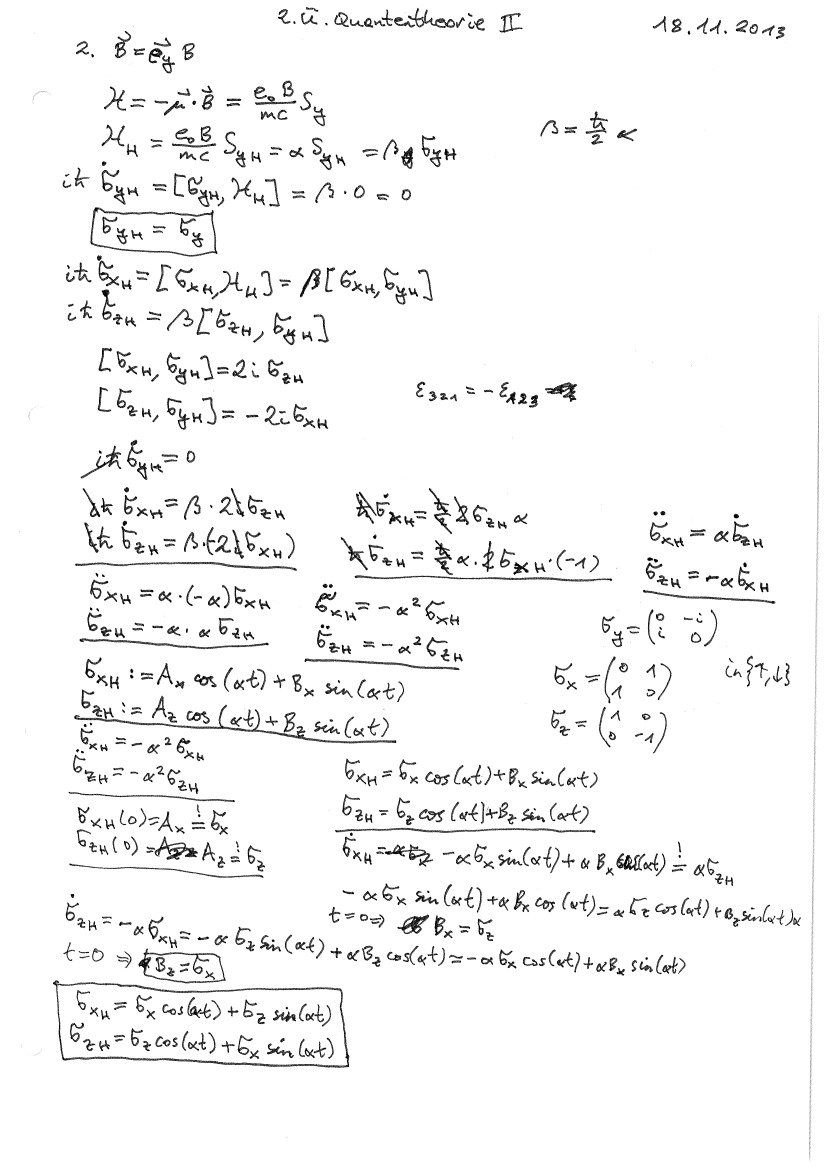 2. Ü. Quantentheorie II 18.11.2013
2. B⃗ = e⃗_y B
ℋ = -μ⃗·B⃗ = e₀B/mc S_y
ℋ_H = e₀B/mc S_yH = α S_yH = β σ_yH β = ħ/2 α
iħ σ̇_yH = [σ_yH, ℋ_H] = β·0 = 0
σ_yH = σ_y
iħ σ̇_xH = [σ_xH, ℋ_H] = β[σ_xH, σ_yH]
iħ σ̇_zH = β[σ_zH, σ_yH]
[σ_xH, σ_yH] = 2i σ_zH
[σ_zH, σ_yH] = -2i σ_xH ε_321 = -ε_123
iħ σ̇_yH = 0
iħ σ̇_xH = β·2i σ_zH ħ σ̇_xH = ħ/2 2 σ_zH α
iħ σ̇_zH = β·(-2i σ_xH) ħ σ̇_zH = ħ/2 α·2 σ_xH·(-1)
σ̈_xH = α σ̇_zH
σ̈_zH = -α σ̇_xH
σ̈_xH = α·(-α) σ_xH σ̈_xH = -α² σ_xH
σ̈_zH = -α·α σ_zH σ̈_zH = -α² σ_zH
σ_y = (0 -i
i 0)
σ_x = (0 1
1 0) in {↑,↓}
σ_z = (1 0
0 -1)
σ_xH := A_x cos(αt) + B_x sin(αt)
σ_zH := A_z cos(αt) + B_z sin(αt)
σ̈_xH = -α² σ_xH
σ̈_zH = -α² σ_zH
σ_xH(0) = A_x =! σ_x
σ_zH(0) = A_z =! σ_z
σ_xH = σ_x cos(αt) + B_x sin(αt)
σ_zH = σ_z cos(αt) + B_z sin(αt)
σ̇_xH = -α σ_x sin(αt) + α B_x cos(αt) =! α σ_zH
-α σ_x sin(αt) + α B_x cos(αt) = α σ_z cos(αt) + B_z sin(αt) α
t=0 ⇒ B_x = σ_z
σ̇_zH = -α σ_xH = -α σ_z sin(αt) + α B_z cos(αt) = -α σ_x cos(αt) + α B_x sin(αt)
t=0 ⇒ B_z = σ_x
σ_xH = σ_x cos(αt) + σ_z sin(αt)
σ_zH = σ_z cos(αt) + σ_x sin(αt)